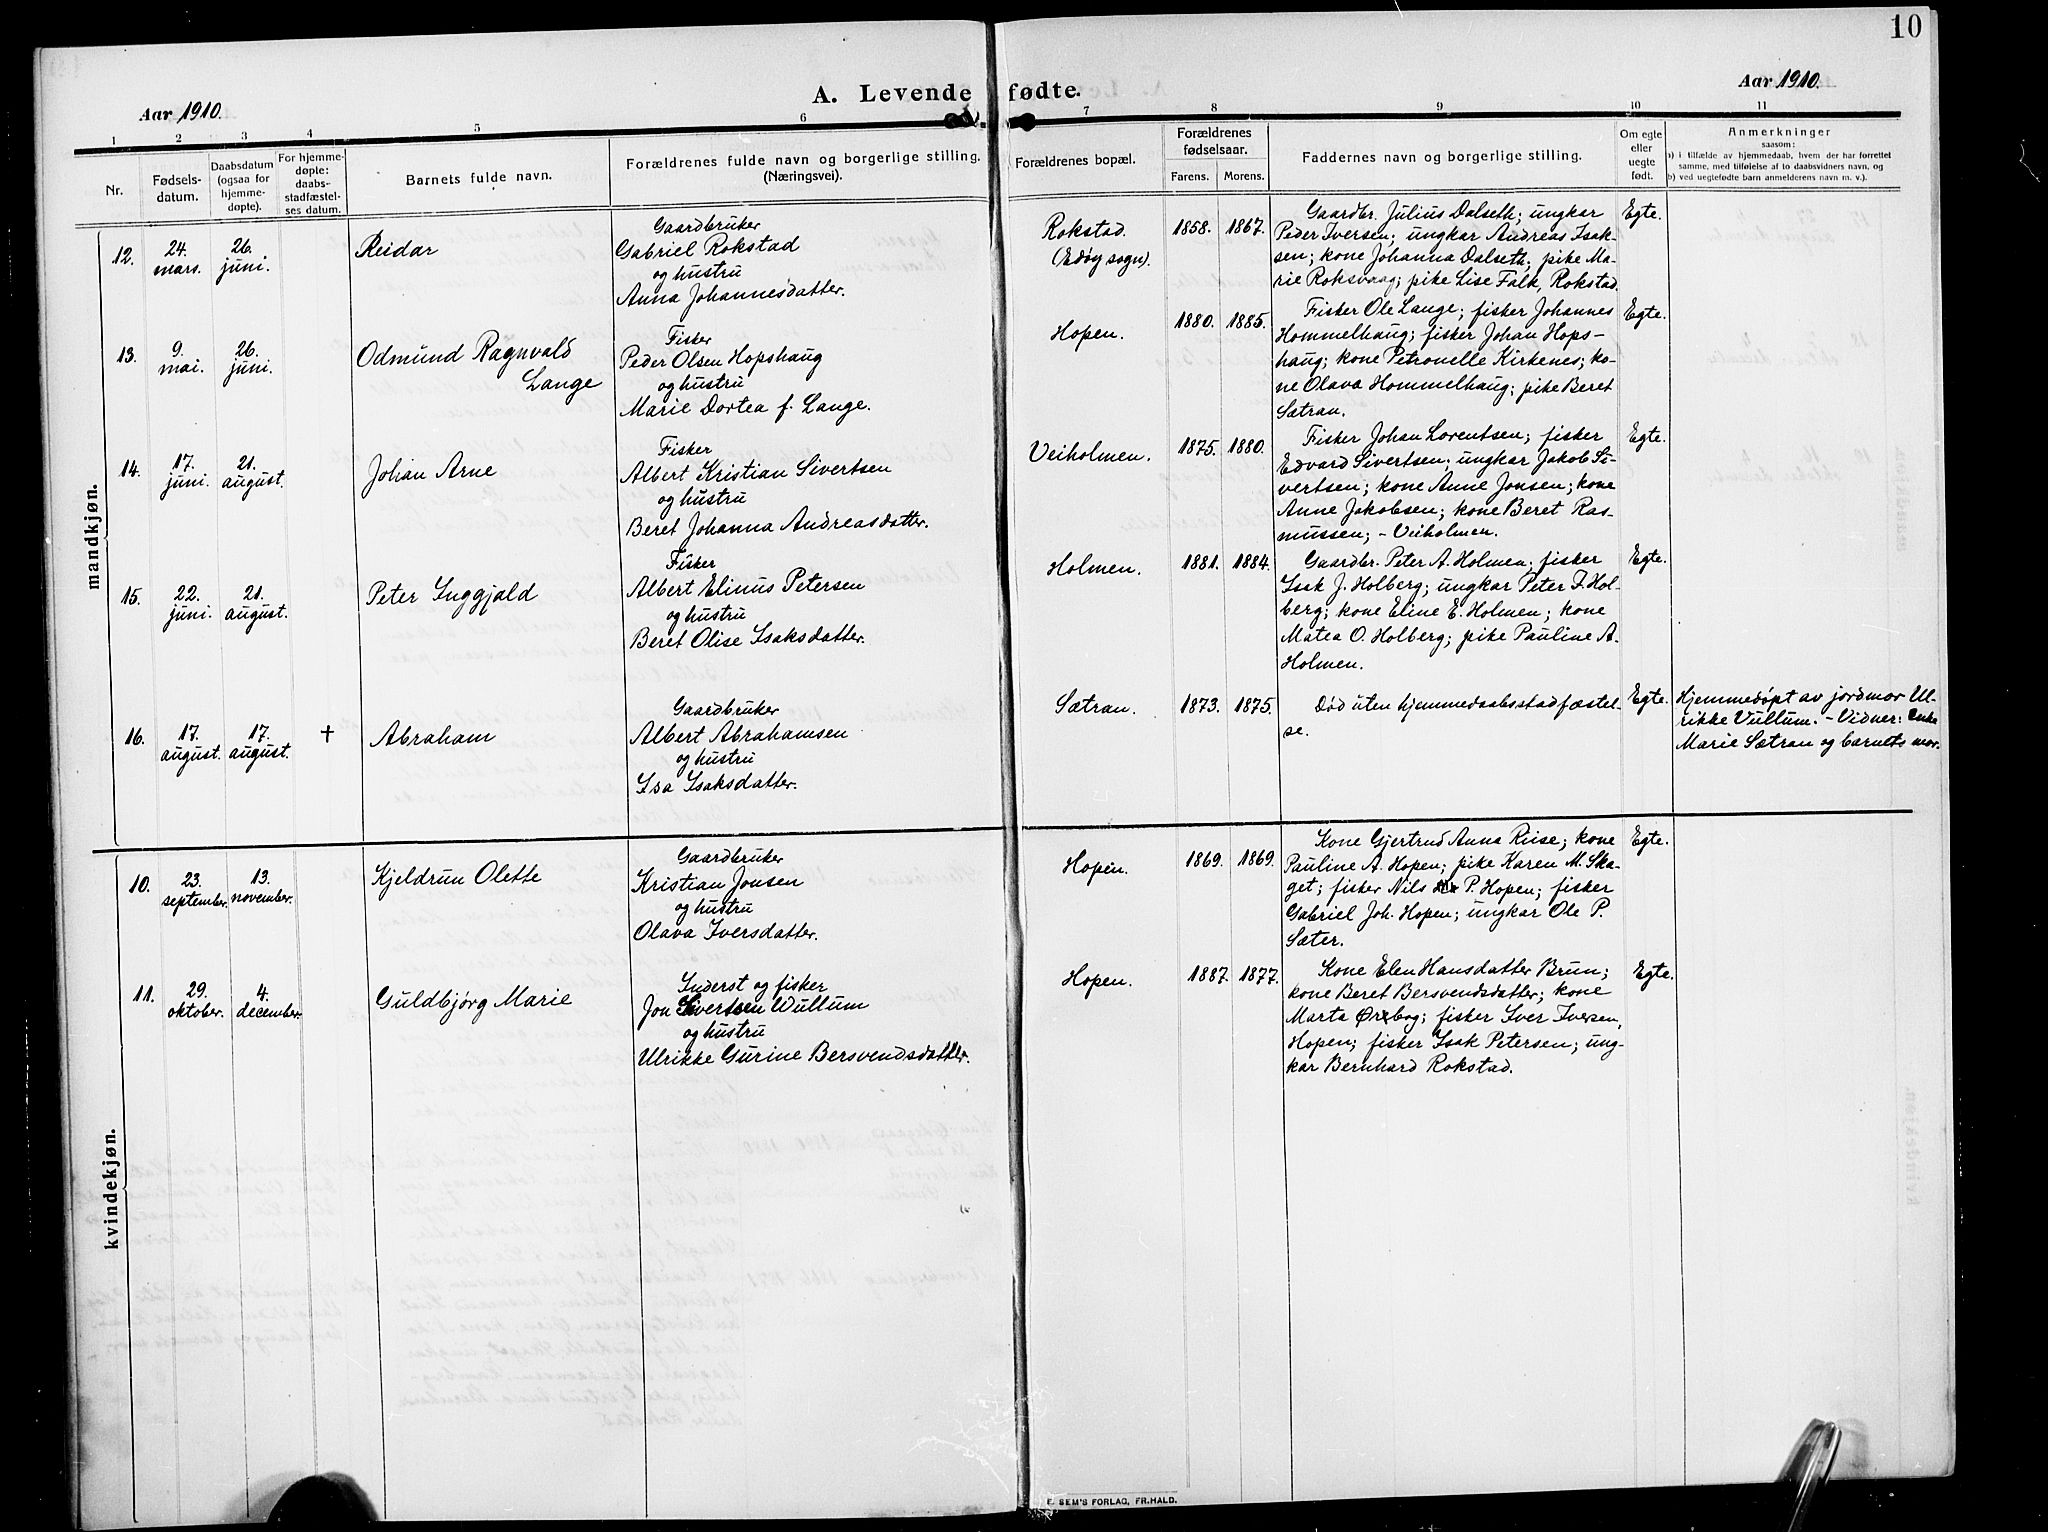 10
A. Levende fødte.
Aar 1910.
Aar 1910.
1 2 3 4 5 6 7 8 9 10 11
Nr.
Fødsels-
datum.
Daabsdatum
(ogsaa for
hjemme-
døpte).
For hjemme-
døpte:
daabs-
stadfæstel-
ses datum.
Barnets fulde navn.
Forældrenes fulde navn og borgerlige stilling.
(Næringsvei).
Forældrenes bopæl.
Forældrenes
fødselsaar.
Farens. Morens.
Faddernes navn og borgerlige stilling.
Om egte
eller
uegte
født.
Anmerkninger
saasom:
a) i tilfælde av hjemmedaab, hvem der har forrettet
samme, med tilføielse av to daabsvidners navn, og
b) ved uegtefødte barn anmelderens navn m. v.).
mandkjøn.
12.
24.
mars.
26.
juni.
Reidar
Gaardbruker
Gabriel Rokstad
og hustru
Anna Johannesdatter.
Rokstad.
(Edøy sogn).
1858. 1867.
Gaardbr. Julius Dalseth; ungkar
Peder Iversen; ungkar Andreas Isak-
sen; kone Johanna Dalseth; pike Ma-
rie Roksvaag; pike Lise Falk, Rokstad.
Egte.
13.
9.
mai.
26.
juni.
Odmund Ragnvald
Lange
Fisker
Peder Olsen Hopshaug
og hustru
Marie Dortea f. Lange.
Hopen.
1880. 1885.
Fisker Ole Lange; fisker Johannes
Hommelhaug; fisker Johan Hops-
haug; kone Petronelle Kirkenes; ko-
ne Olava Hommelhaug; pike Beret
Sætran.
Egte.
14.
17.
juni.
21.
august.
Johan Arne
Fisker
Albert Kristian Sivertsen
og hustru
Beret Johanna Andreasdatter.
Veiholmen.
1875. 1880.
Fisker Johan Lorentsen; fisker
Edvard Sivertsen; ungkar Jakob Si-
vertsen; kone Anne Jonsen; kone
Anne Jakobsen; kone Beret Ras-
mussen; - Veiholmen.
Egte.
15.
22.
juni.
21.
august.
Peter Inggjald
Fisker
Albert Elinus Petersen
og hustru
Beret Olise Isaksdatter.
Holmen.
1881. 1884.
Gaardbr. Peter A. Holmen; fisker
Isak J. Holberg; ungkar Peter F. Hol-
berg; kone Eline E. Holmen; kone
Matea O. Holberg; pike Pauline A.
Holmen.
Egte.
16.
17.
august.
17.
august.
†
Abraham
Gaardbruker
Albert Abrahamsen
og hustru
Isa Isaksdatter.
Sætran.
1873. 1875.
Død uten hjemmedaabsstadfæstel-
se.
Egte.
Hjemmedøpt av jordmor Ul-
rikke Vullum. - Vidner: Enke
Marie Sætran og barnets mor.
kvindekjøn.
10.
23.
september.
13.
november.
Kjeldrun Olette
Gaardbruker
Kristian Jonsen
og hustru
Olava Iversdatter.
Hopen.
1869. 1869.
Kone Gjertrud Anna Riise; kone
Pauline A. Hopen; pike Karen M. Ska-
get; fisker Nils P. Hopen; fisker
Gabriel Joh. Hopen; ungkar Ole P.
Sæter.
Egte.
11.
29.
oktober.
4.
december.
Guldbjørg Marie
Inderst og fisker
Jon Sivertsen Wullum
og hustru
Ulrikke Gurine Bersvendsdatter.
Hopen.
1887. 1877.
Kone Elen Hansdatter Brun;
kone Beret Bersvendsdatter; kone
Marta Ørebog; fisker Iver Iversen,
Hopen; fisker Isak Petersen; ung-
kar Bernhard Rokstad.
Egte.
E. SEM'S FORLAG, FR.HALD.